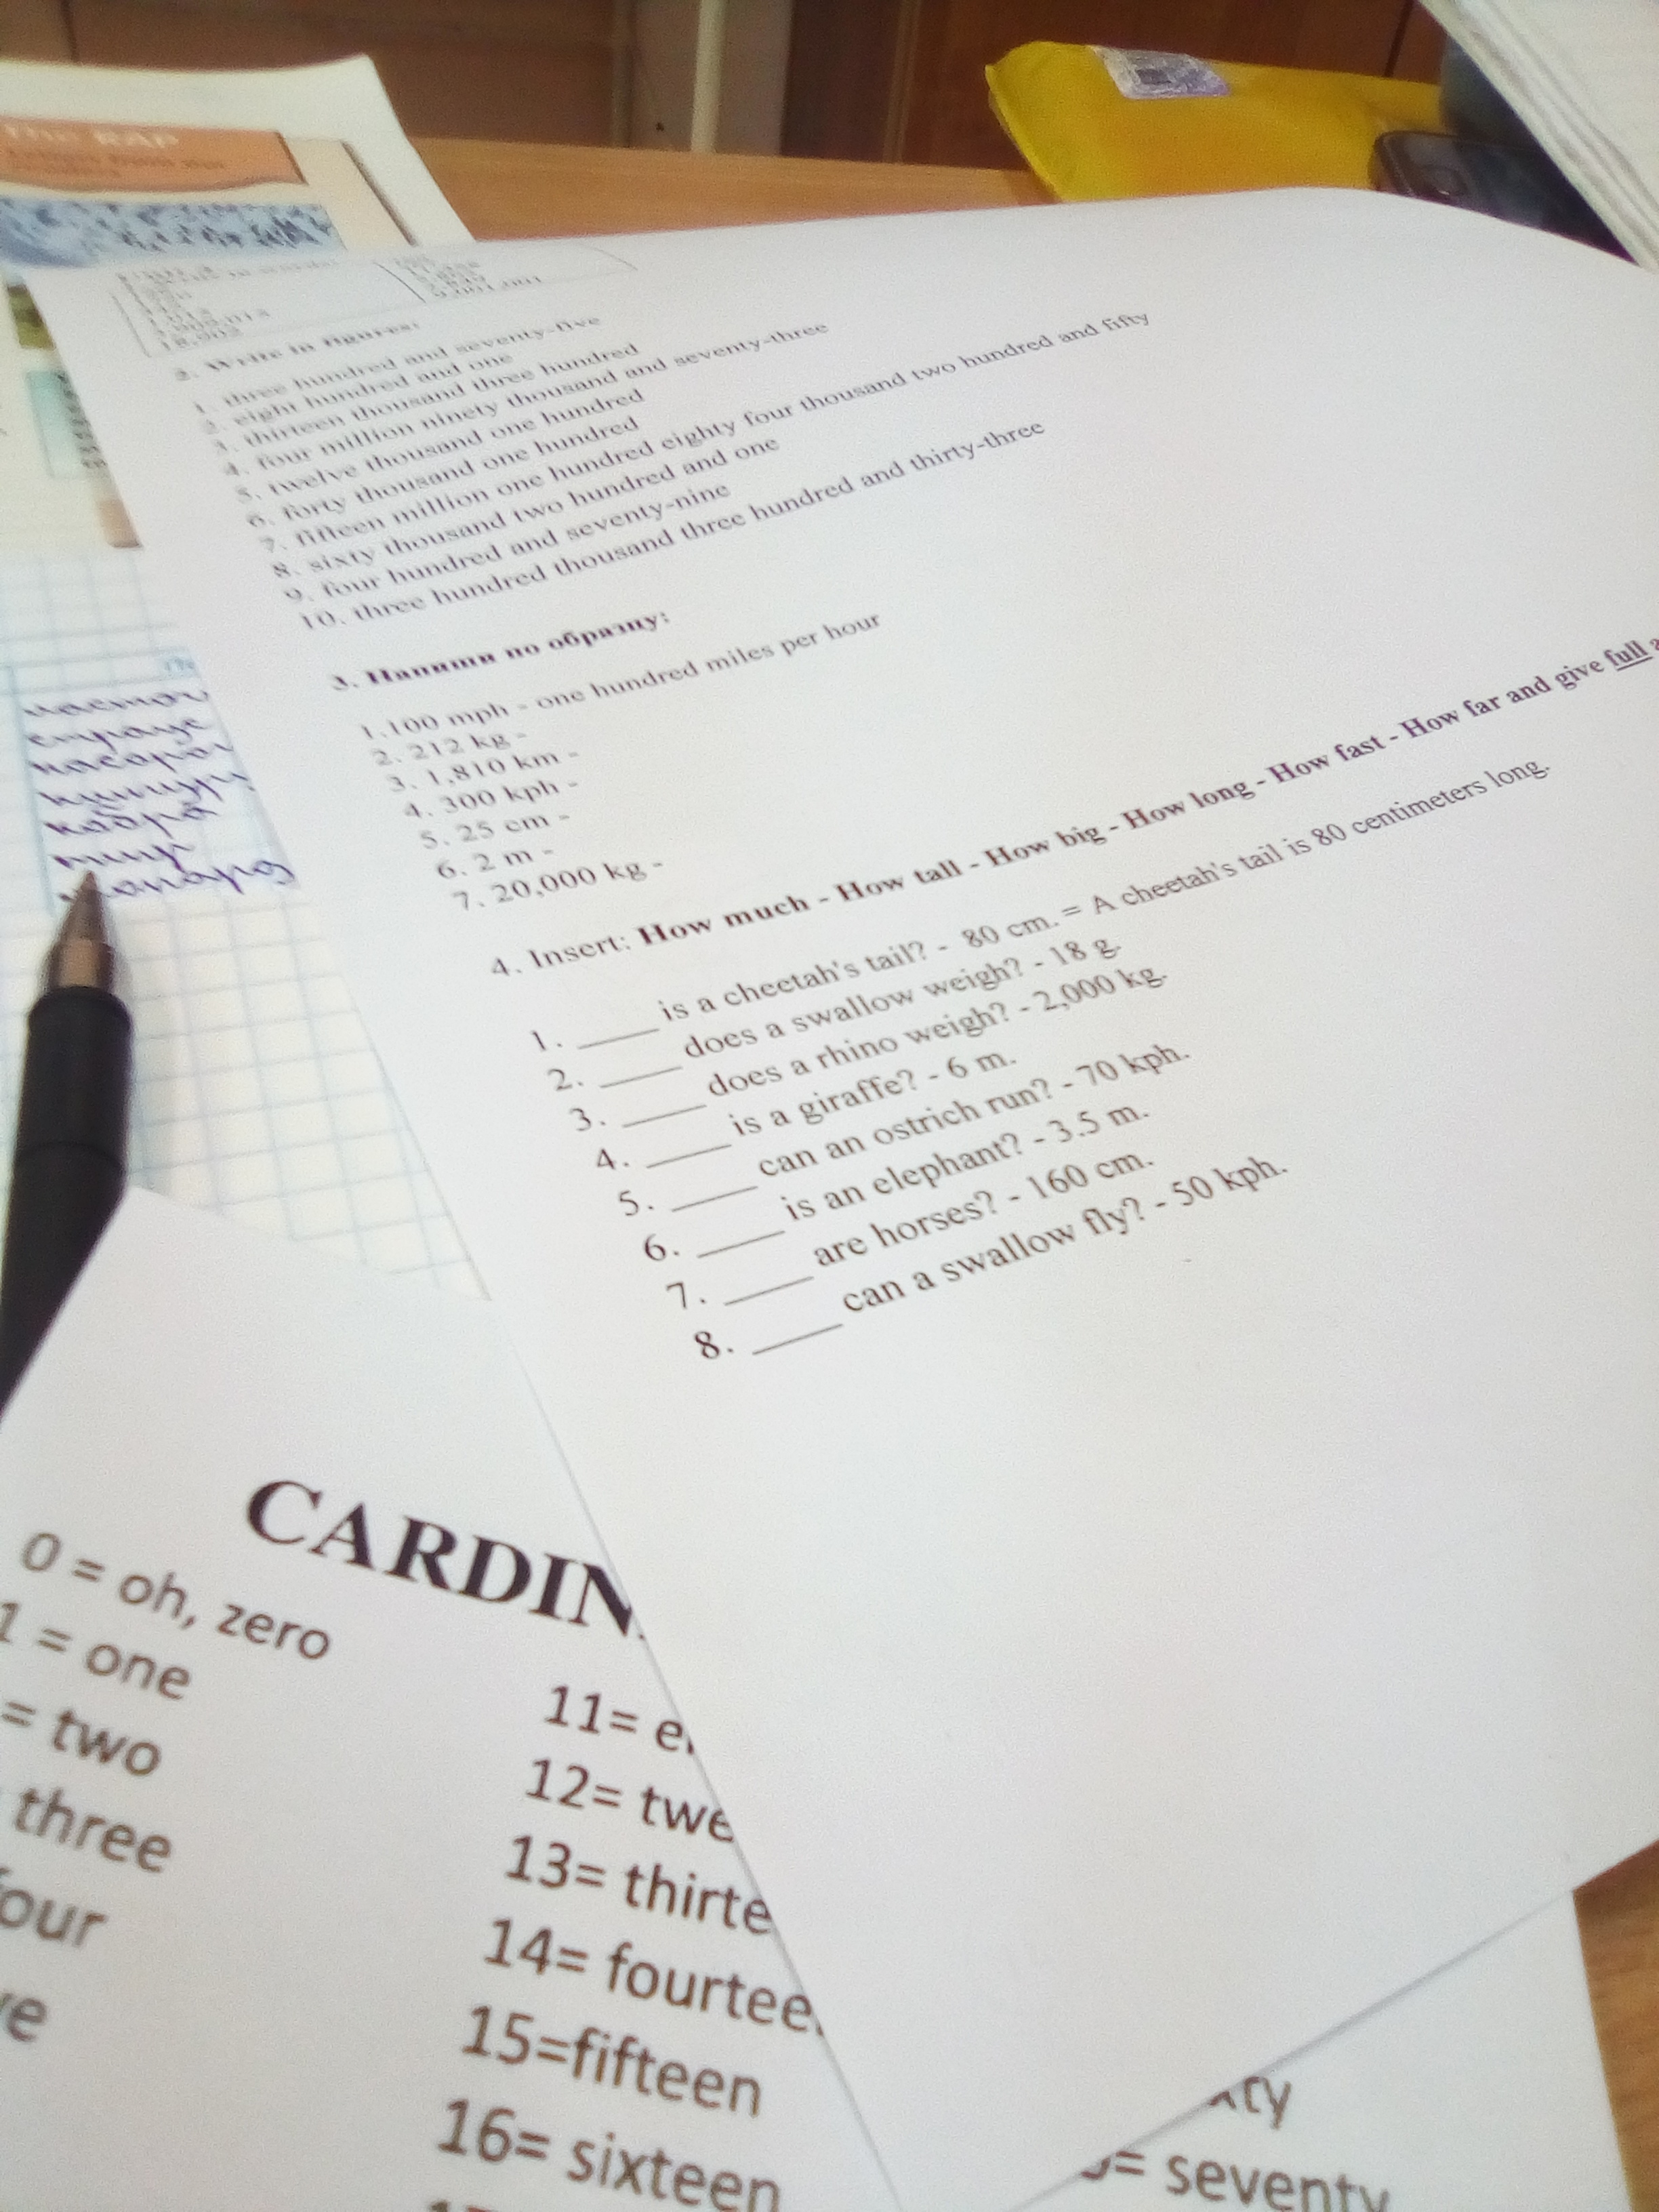 The RAP
18,903
9,001,001
2. Write in figures:
1. three hundred and seventy-five
2. eight hundred and one
3. thirteen thousand three hundred
4. four million ninety thousand and seventy-three
5. twelve thousand one hundred
6. forty thousand one hundred
7. fifteen million one hundred eighty four thousand two hundred and fifty
8. sixty thousand two hundred and one
9. four hundred and seventy-nine
10. three hundred thousand three hundred and thirty-three
3. Напиши по образцу:
1.100 mph - one hundred miles per hour
2. 212 kg -
3. 1,810 km -
4. 300 kph -
5. 25 cm -
6. 2 m -
7. 20,000 kg -
4. Insert: How much - How tall - How big - How long - How fast - How far and give full a
1. _____ is a cheetah's tail? - 80 cm. = A cheetah's tail is 80 centimeters long.
2. _____ does a swallow weigh? - 18 g.
3. _____ does a rhino weigh? - 2,000 kg.
4. _____ is a giraffe? - 6 m.
5. _____ can an ostrich run? - 70 kph.
6. _____ is an elephant? - 3.5 m.
7. _____ are horses? - 160 cm.
8. _____ can a swallow fly? - 50 kph.
кобра
тигр
CARDIN
0 = oh, zero
1 = one
= two
three
four
ve
11= e
12= twe
13= thirte
14= fourtee
15=fifteen
16= sixteen
xty
= seventy